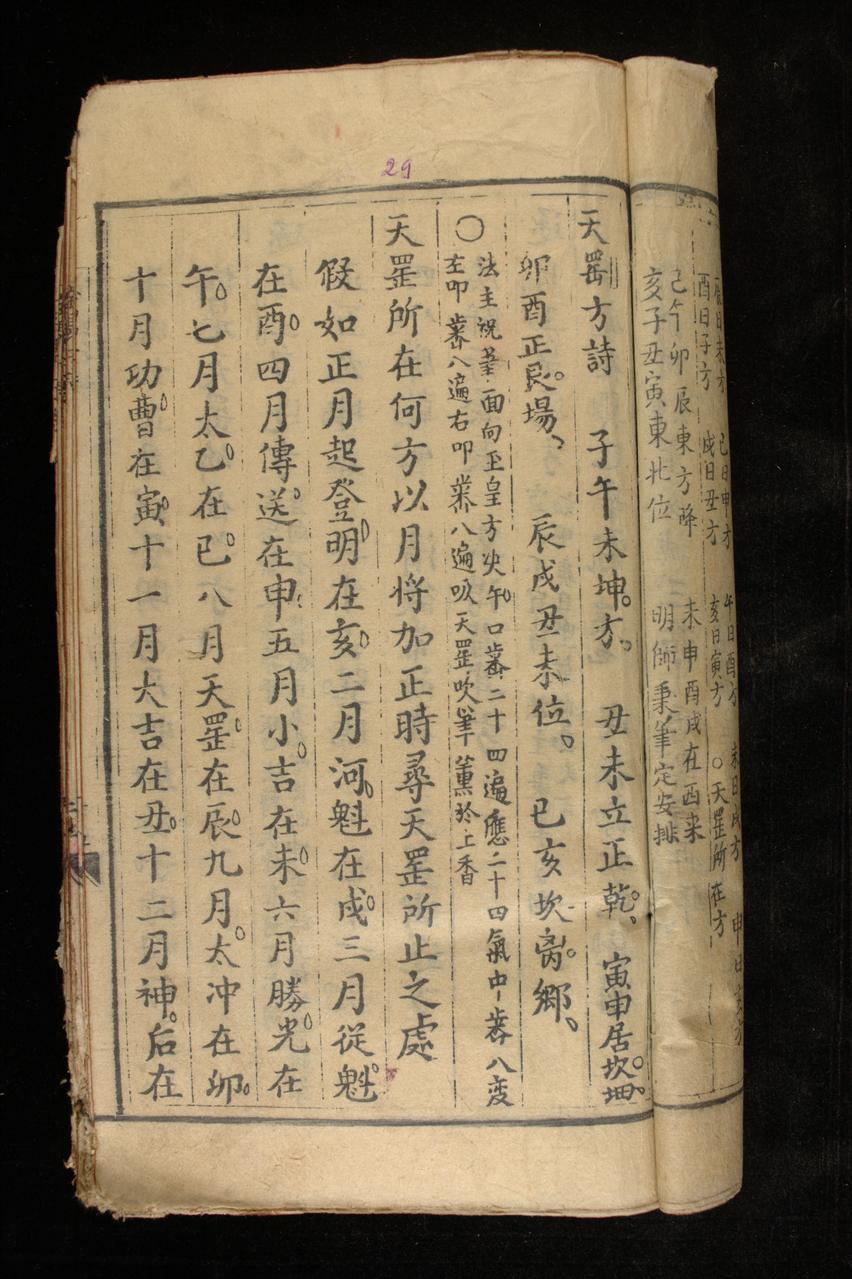 29
酉日子方 戌日丑方 亥日寅方 ○天罡所在方
巳午卯辰東方降 未申酉戌在西来
亥子丑寅東北位 明師秉筆定安排
天罡方詩 子午未坤方 丑未立正乾 寅申居坎
卯酉正艮場 辰戌丑未位 巳亥坎离鄉
○
法主祝筆面向玉皇方 午口 二十四遍應二十四氣中 八変
左叩 八遍右叩 八遍吸天罡吹筆薰於上香
天罡所在何方以月将加正時尋天罡所止之處
假如正月起登明在亥二月河魁在戍三月從魁
在酉四月傳送在申五月小吉在未六月勝光在
午七月太乙在巳八月天罡在辰九月太冲在卯
十月功曹在寅十一月大吉在丑十二月神后在